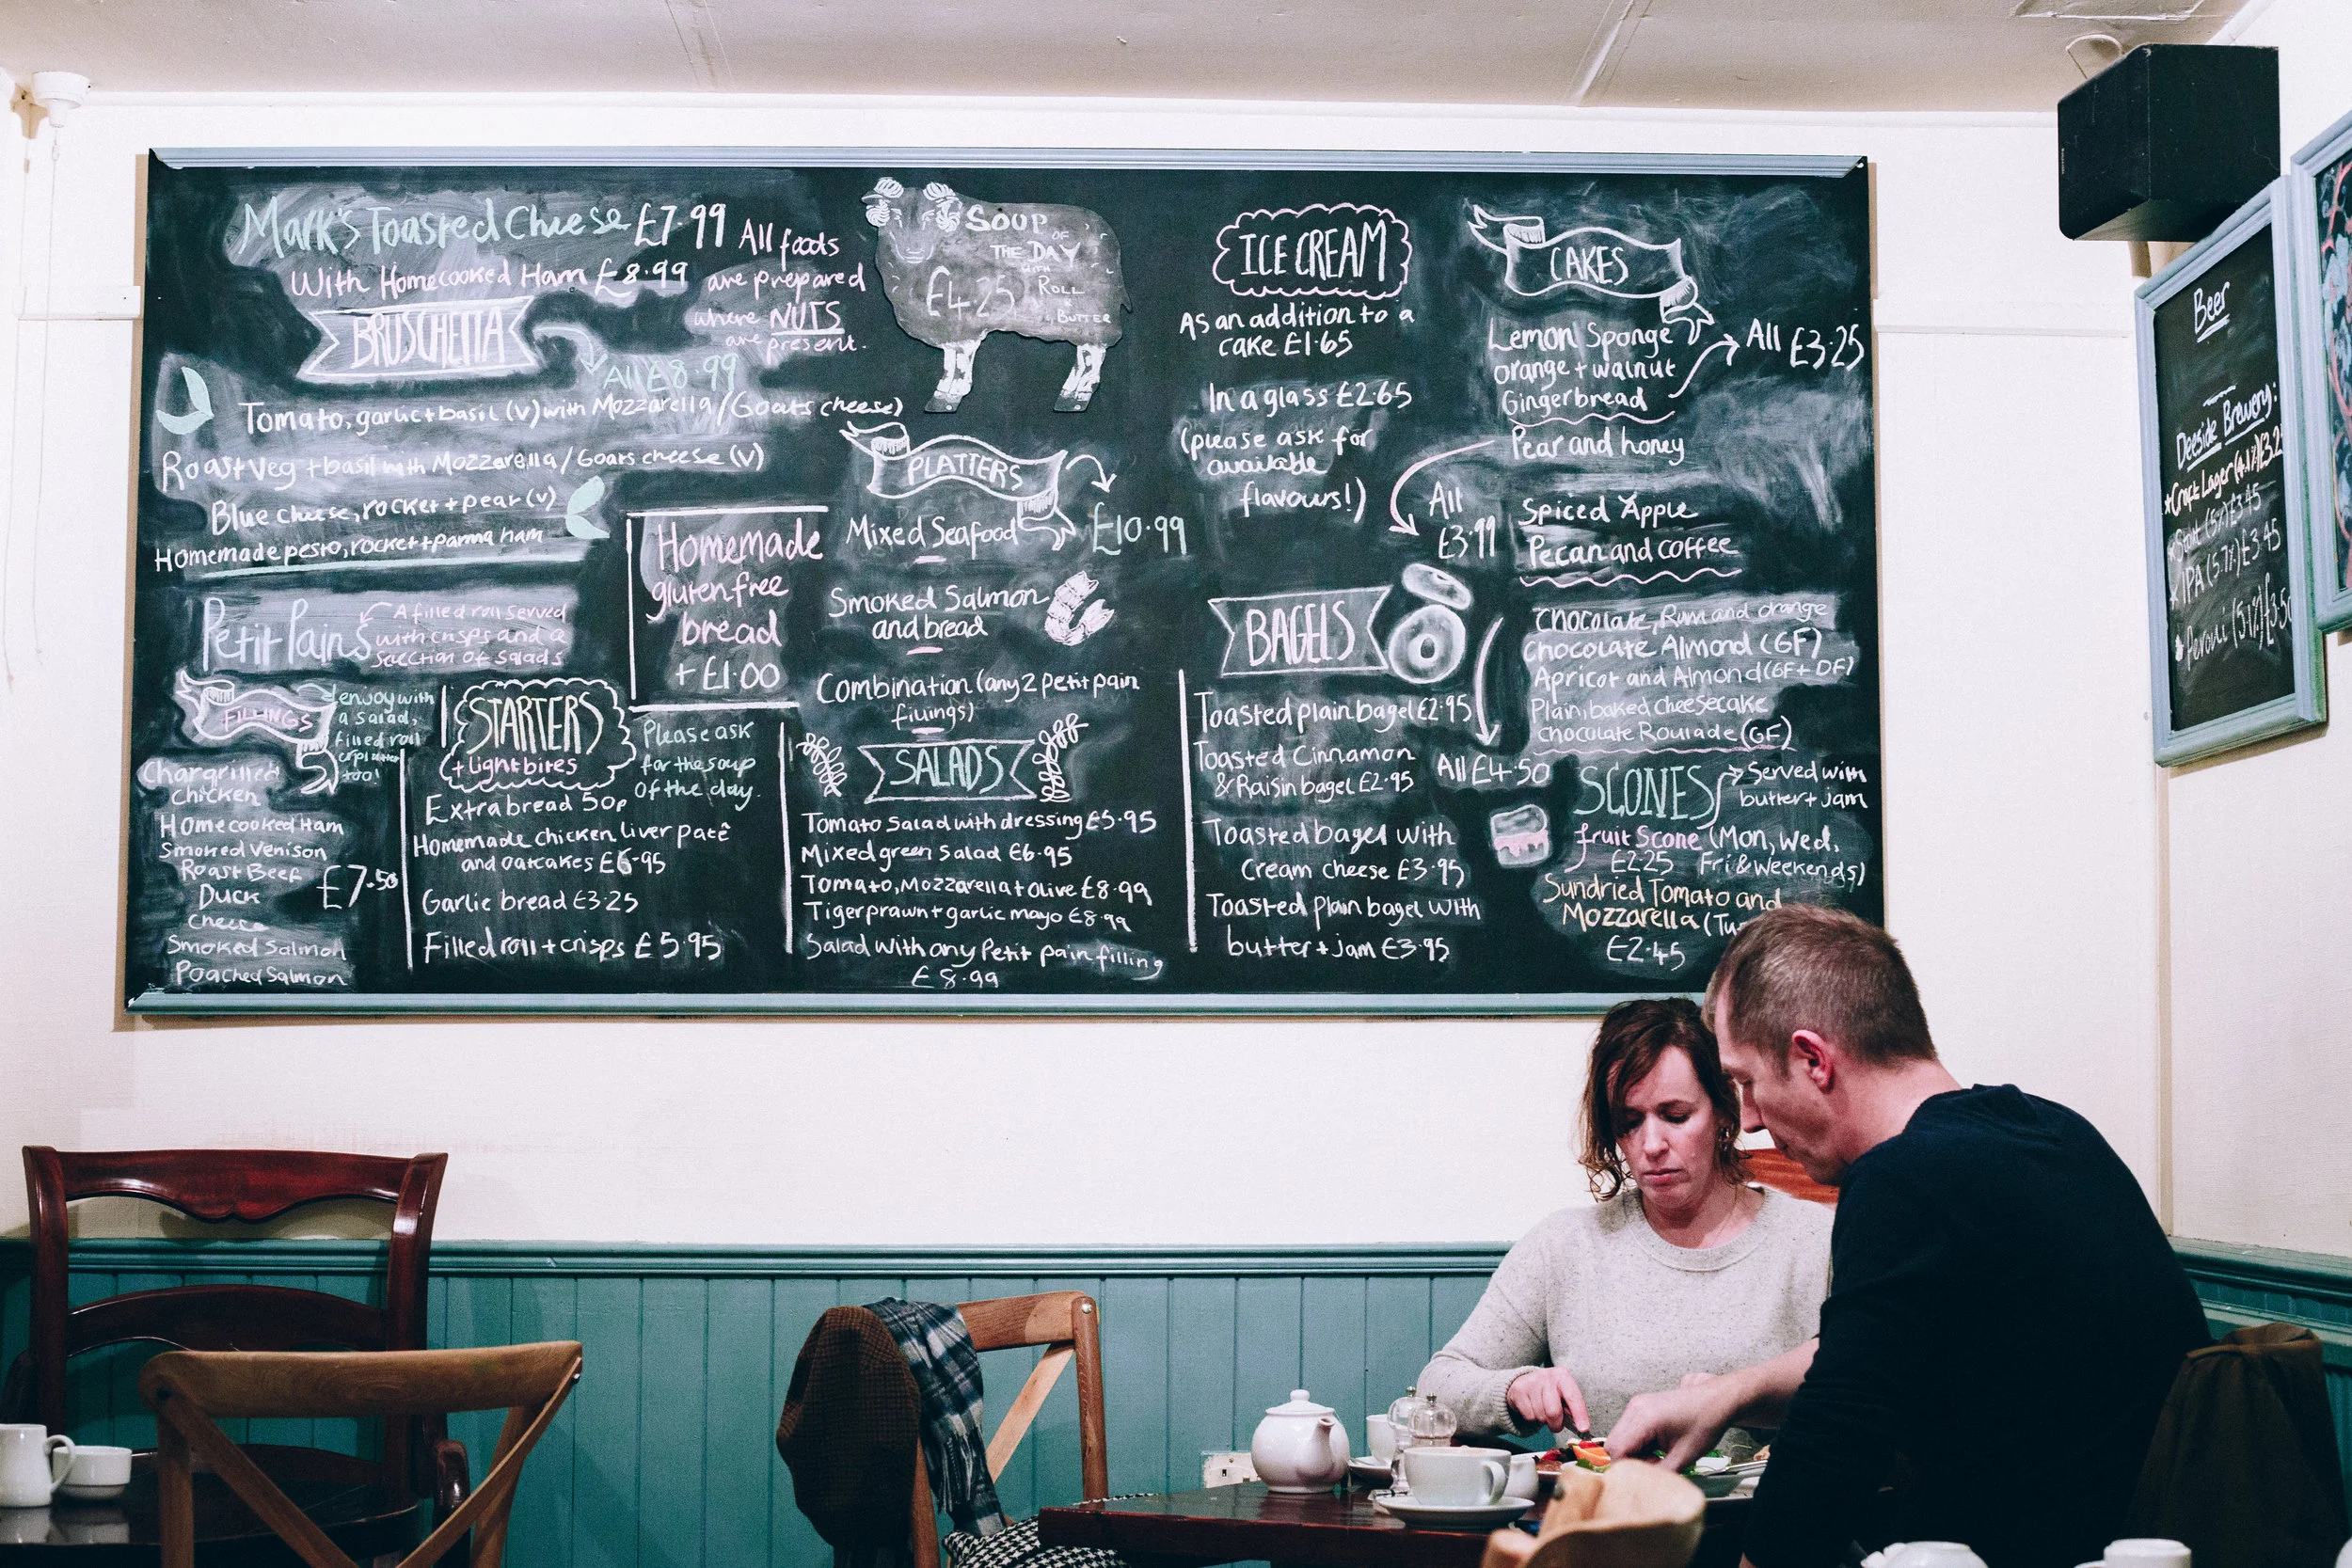 Mark's Toasted Cheese £7.99
With Homecooked Ham £8.99
All foods
are prepared
where NUTS
are present.
BRUSCHETTA
All £8.99
Tomato, garlic + basil (v) with Mozzarella / Goats cheese)
Roast Veg + basil with Mozzarella / Goats cheese (v)
Blue cheese, rocket + pear (v)
Homemade pesto, rocket + parma ham
Petit Pains
A filled roll served
with crisps and a
selection of salads
FILLINGS
enjoy with
a salad,
filled roll
or platter
too!
Chargrilled
Chicken
Homecooked Ham
Smoked Venison
Roast Beef
Duck
Cheese
Smoked Salmon
Poached Salmon
£7.50
STARTERS
+ light bites
Please ask
for the soup
of the day.
Extra bread 50p
Homemade chicken liver patê
and oatcakes £6.95
Garlic bread £3.25
Filled roll + crisps £5.95
Homemade
gluten free
bread
+ £1.00
SOUP
OF
THE DAY
WITH
ROLL
&
BUTTER
£4.25
PLATTERS
£10.99
Mixed Seafood
Smoked Salmon
and bread
Combination (any 2 petit pain
fillings)
SALADS
Tomato Salad with dressing £5.95
Mixed green Salad £6.95
Tomato, Mozzarella + Olive £8.99
Tiger prawn + garlic mayo £8.99
Salad with any Petit pain filling
£8.99
ICE CREAM
As an addition to a
cake £1.65
In a glass £2.65
(please ask for
available
flavours!)
BAGELS
Toasted plain bagel £2.95
Toasted Cinnamon
& Raisin bagel £2.95
Toasted bagel with
Cream cheese £3.95
Toasted Plain bagel with
butter + jam £3.95
CAKES
Lemon Sponge
orange + walnut
Gingerbread
All £3.25
Pear and honey
Spiced Apple
Pecan and coffee
All
£3.99
Chocolate, Rum and orange
Chocolate Almond (GF)
Apricot and Almond (GF + DF)
Plain, baked cheesecake
Chocolate Roulade (GF)
All £4.50
SCONES
Served with
butter + jam
fruit Scone (Mon, Wed,
£2.25 Fri & Weekends)
Sundried Tomato and
Mozzarella (Tu
£2.45
Beer
Deeside Brewery:
Craft Lager (4.1%) £3.2
Stout (5%) £3.45
IPA (5.7%) £3.45
Peroni (5.1%) £3.50